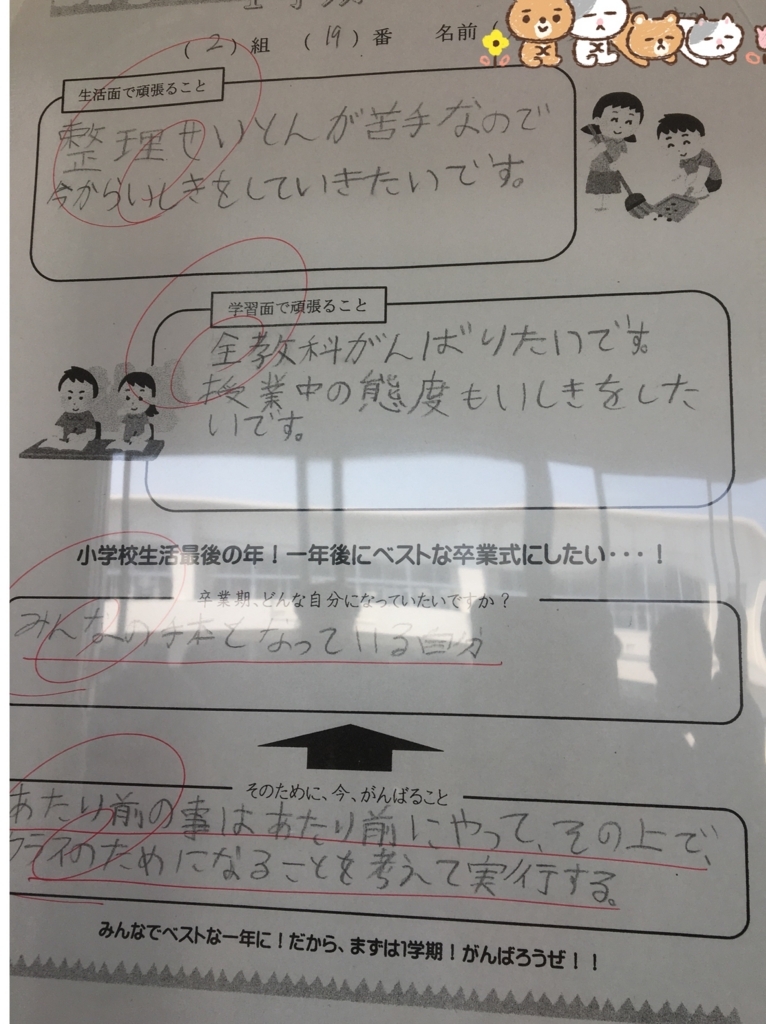 (2)組 (19)番 名前(
生活面で頑張ること
整理せいとんが苦手なので
今からいしきをしていきたいです。
学習面で頑張ること
全教科がんばりたいです。
授業中の態度もいしきをした
いです。
小学校生活最後の年！一年後にベストな卒業式にしたい・・・！
卒業期、どんな自分になっていたいですか？
みんなの手本となっている自分
そのために、今、がんばること
あたり前の事はあたり前にやって、その上で、
クラスのためになることを考えて実行する。
みんなでベストな一年に！だから、まずは1学期！がんばろうぜ！！